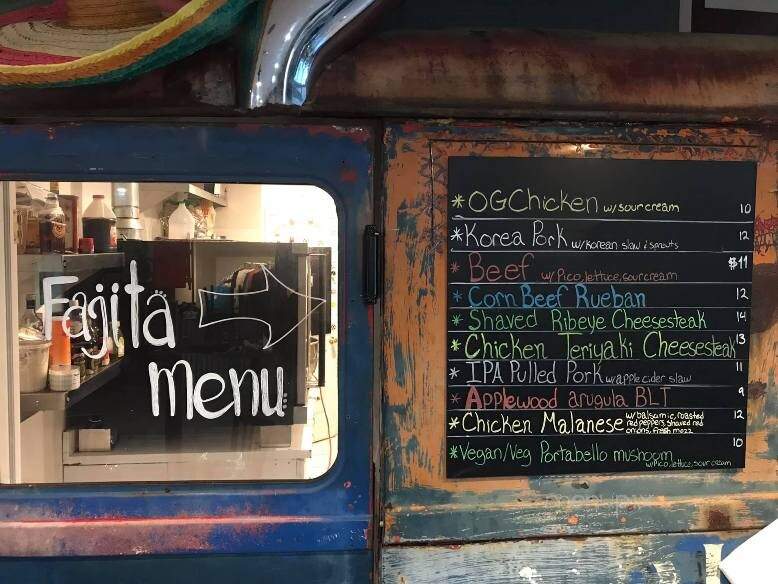 Fajita
menu
* OG Chicken w/ sour cream 10
* Korea Pork w/ Korean slaw & sprouts 12
* Beef w/ Pico, lettuce, sour cream $11
* Corn Beef Rueban 12
* Shaved Ribeye Cheesesteak 14
* Chicken Teriyaki Cheesesteak 13
* IPA Pulled Pork w/ apple cider slaw 11
* Applewood arugula BLT 9
* Chicken Malanese w/ balsamic, roasted 12
red peppers, shaved red
onions, fresh mozz
* Vegan/Veg Portabello mushoom 10
w/ Pico, lettuce, sour cream